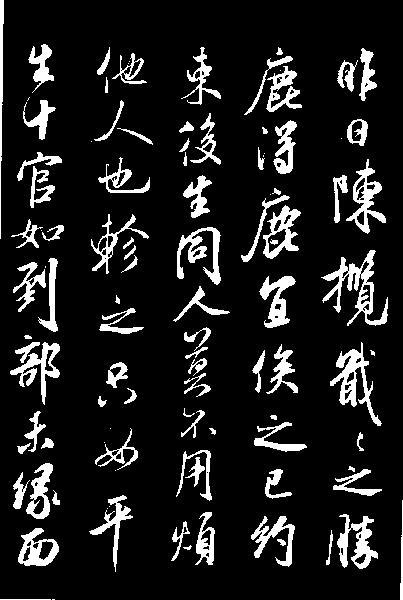 昨日陳攬戢々之勝
鹿得鹿宜俟之已約
束後生同人莫不用煩
他人也軫之只如平
生十官如到部未緣面